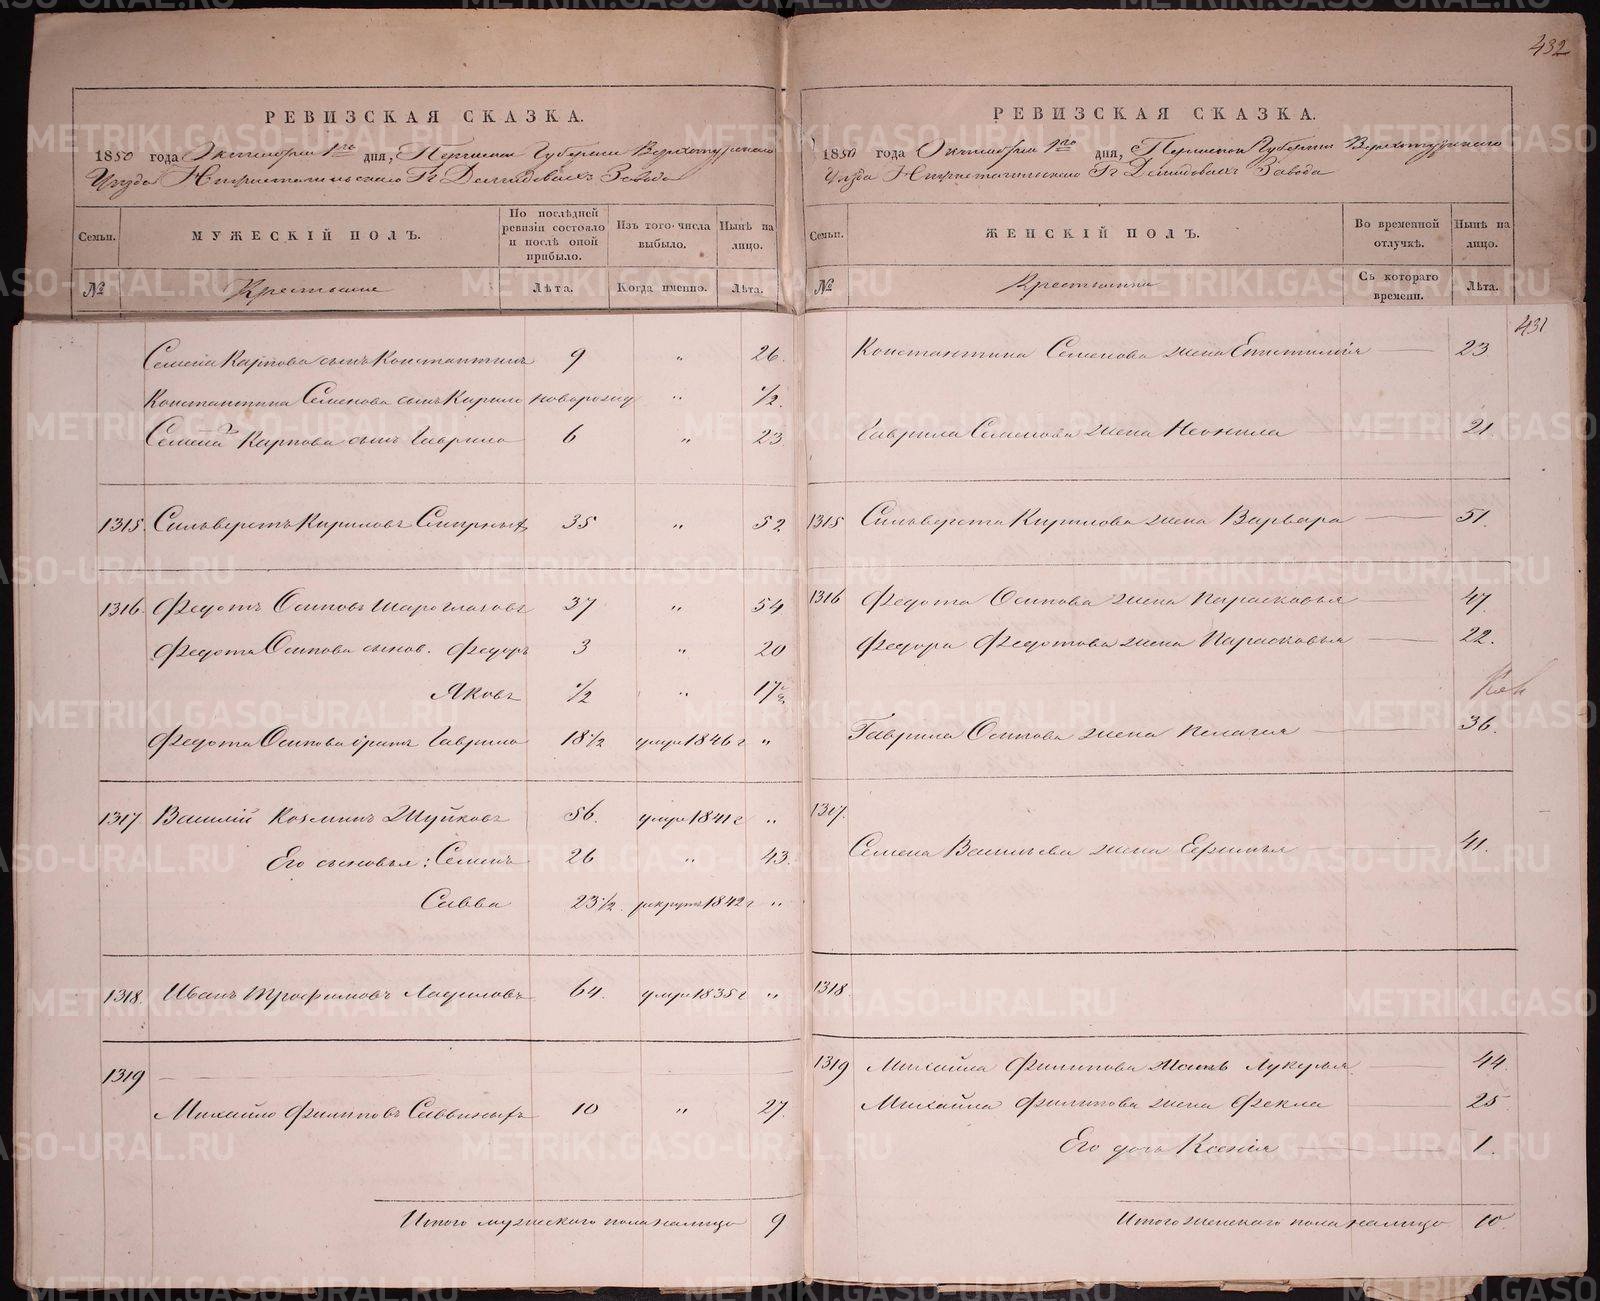 432
РЕВИЗСКАЯ СКАЗКА.
1850 года Октября 1го дня, Пермской Губернии Верхотурскаго
Уѣзда Гг Демидовыхъ Завода
Семьи. МУЖЕСКІЙ ПОЛЪ. По послѣдней ревизіи состояло и послѣ оной прибыло. Изъ того числа выбыло. Нынѣ на лицо.
№ Крестьяне Лѣта. Когда именно. Лѣта.
Семена Карпова сынъ Константинъ 9 " 26.
Константина Семенова сынъ Кирило новорожд " 1/2.
Семена Карпова сынъ Гаврило 6 " 23
1315. Сильверстъ Кириловъ 35 " 52
1316. Федотъ Осиповъ Шароглазовъ 37 " 54
Федота Осипова сынов. Федоръ 3 " 20
Яковъ 1/2 " 17 1/2
Федота Осипова братъ Гаврило 18 1/2 умре 1846 г "
1317. Василій Козминъ Шуйковъ 56. умре 1841 г "
Его сыновья: Семенъ 26 " 43.
Савва 23 1/2. рекрутъ 1842 г "
1318. Иванъ Трофимовъ 64. умре 1835 г "
1319
Михайло Филиповъ 10 " 27.
Итого мужескаго пола налицо 9
РЕВИЗСКАЯ СКАЗКА.
1850 года Октября 1го дня, Пермской Губерніи Верхотурскаго
Уѣзда Гг Демидовыхъ Завода
Семьи. ЖЕНСКІЙ ПОЛЪ. Во временной отлучкѣ. Нынѣ на лицо.
№ Крестьянки Съ котораго времени. Лѣта.
431
Константина Семенова жена 23
Гаврила Семенова жена Неонила 21.
1315 Сильверста Кирилова жена Варвара 51.
1316 Федота Осипова жена Парасковья 47.
Федора Федотова жена Парасковья 22.
Гаврила Осипова жена Пелагия 36.
1317.
Семена Васильева жена Ефимья 41.
1318
1319 Михайла Филипова мать Лукерья 44.
Михайла Филипова жена Фекла 25
Его дочь Ксения 1.
Итого женскаго пола налицо 10.
METRIKI.GASO-URAL.RU